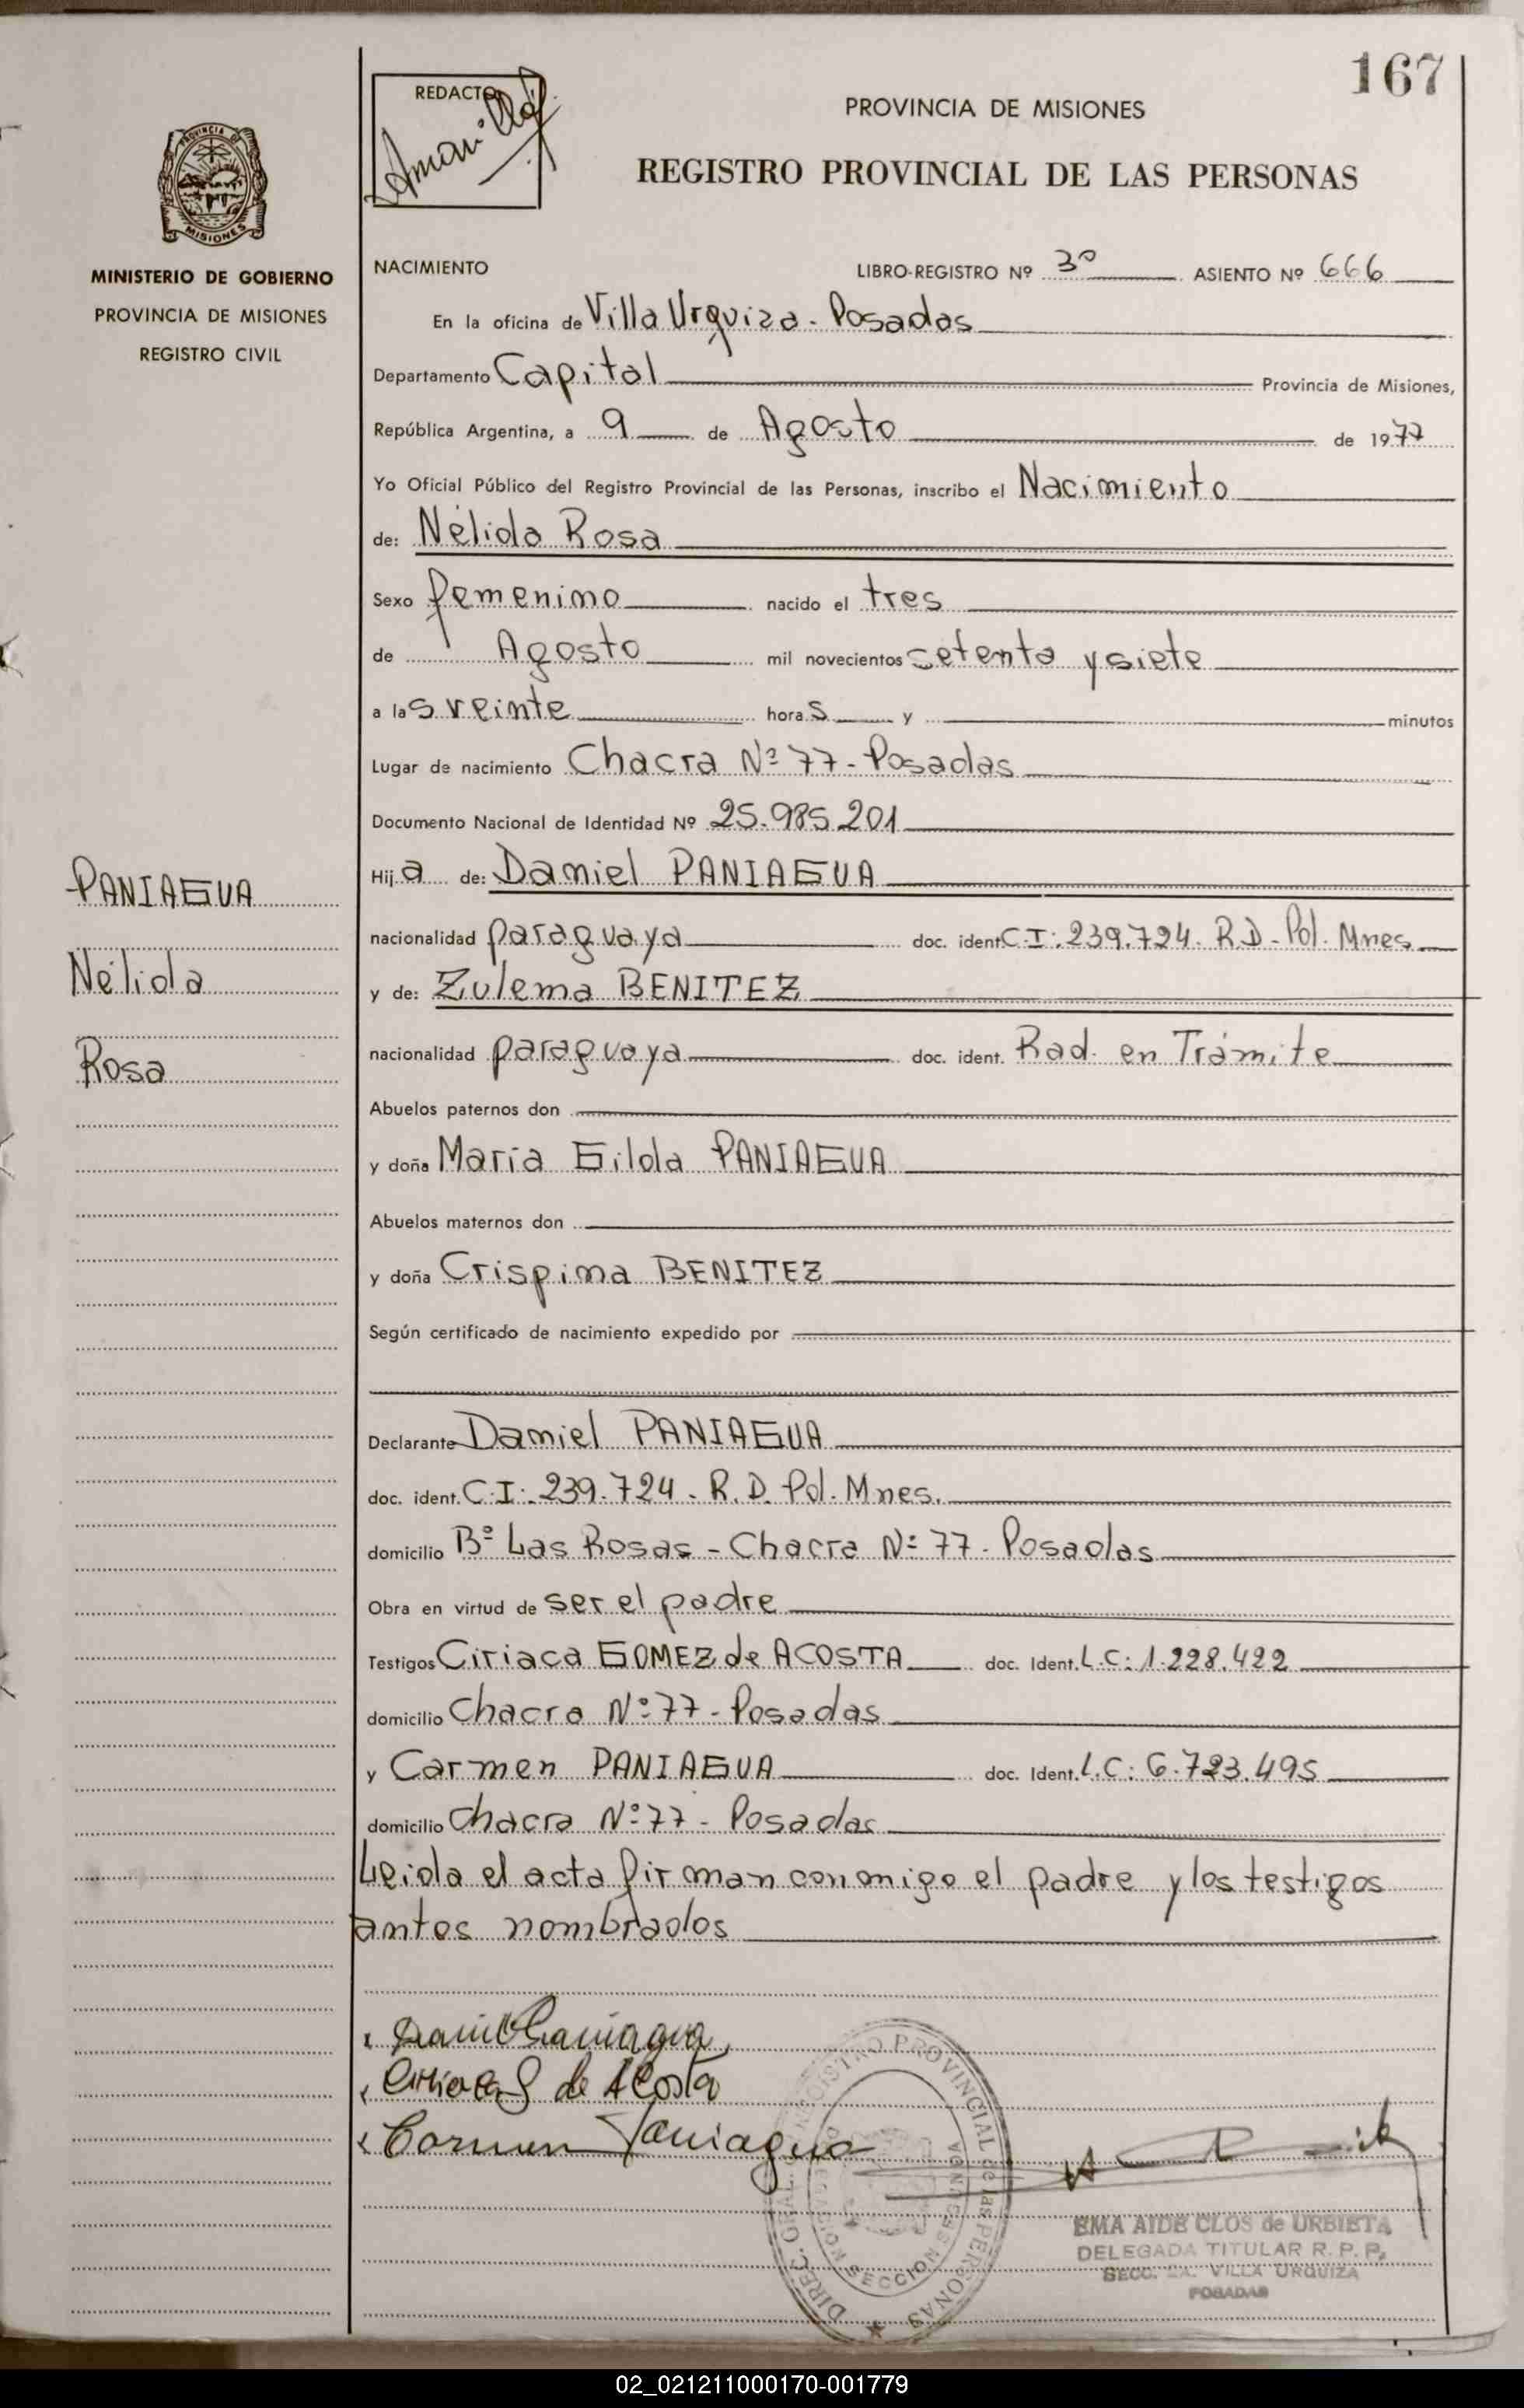 167
REDACTO
PROVINCIA DE MISIONES
REGISTRO PROVINCIAL DE LAS PERSONAS
PROVINCIA DE
MISIONES
MINISTERIO DE GOBIERNO
PROVINCIA DE MISIONES
REGISTRO CIVIL
NACIMIENTO LIBRO-REGISTRO Nº 3º ASIENTO Nº 666
En la oficina de Villa Urquiza - Posadas
Departamento Capital Provincia de Misiones,
República Argentina, a 9 de Agosto de 1977
Yo Oficial Público del Registro Provincial de las Personas, inscribo el Nacimiento
de: Nélida Rosa
Sexo femenino nacido el tres
de Agosto mil novecientos setenta y siete
a las veinte horas y minutos
Lugar de nacimiento Chacra Nº 77 - Posadas
Documento Nacional de Identidad Nº 25.985.201
Hija de: Daniel PANIAGUA
PANIAGUA
nacionalidad paraguaya doc. ident. C.I: 239.724. R.D - Pol. Mnes
Nélida
y de: Zulema BENITEZ
nacionalidad paraguaya doc. ident. Rad. en Trámite
Rosa
Abuelos paternos don
y doña María Gilda PANIAGUA
Abuelos maternos don
y doña Crispina BENITEZ
Según certificado de nacimiento expedido por
Declarante Daniel PANIAGUA
doc. ident. C.I: 239.724 - R.D. Pol. Mnes.
domicilio Bº Las Rosas - Chacra Nº 77 - Posadas
Obra en virtud de ser el padre
Testigos Ciriaca GOMEZ de ACOSTA doc. Ident. L.C: 1.228.422
domicilio Chacra Nº 77 - Posadas
y Carmen PANIAGUA doc. Ident. L.C: 6.723.495
domicilio Chacra Nº 77 - Posadas
Leida el acta firman conmigo el padre y los testigos
antes nombrados
Daniel Paniagua
Ciriaca G de Acosta
Carmen Paniagua
REGISTRO PROVINCIAL de las PERSONAS
SECCION
EMA AIDE CLOS de URBIETA
DELEGADA TITULAR R. P. P.
SECC. VILLA URQUIZA
POSADAS
02_021211000170-001779